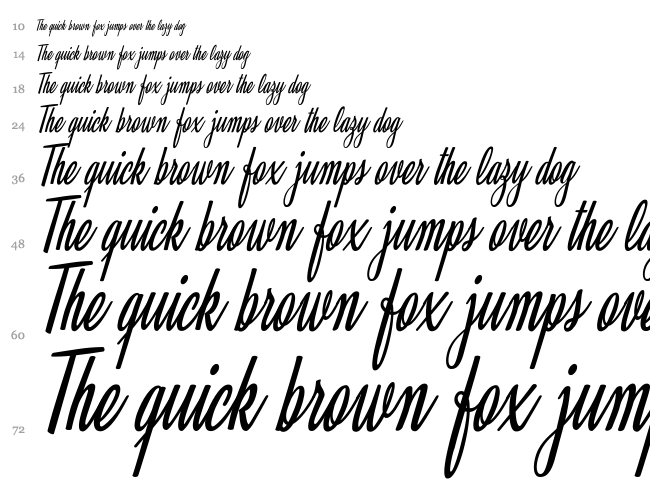 10 The quick brown fox jumps over the lazy dog
14 The quick brown fox jumps over the lazy dog
18 The quick brown fox jumps over the lazy dog
24 The quick brown fox jumps over the lazy dog
36 The quick brown fox jumps over the lazy dog
48 The quick brown fox jumps over the la
60 The quick brown fox jumps ove
72 The quick brown fox jum